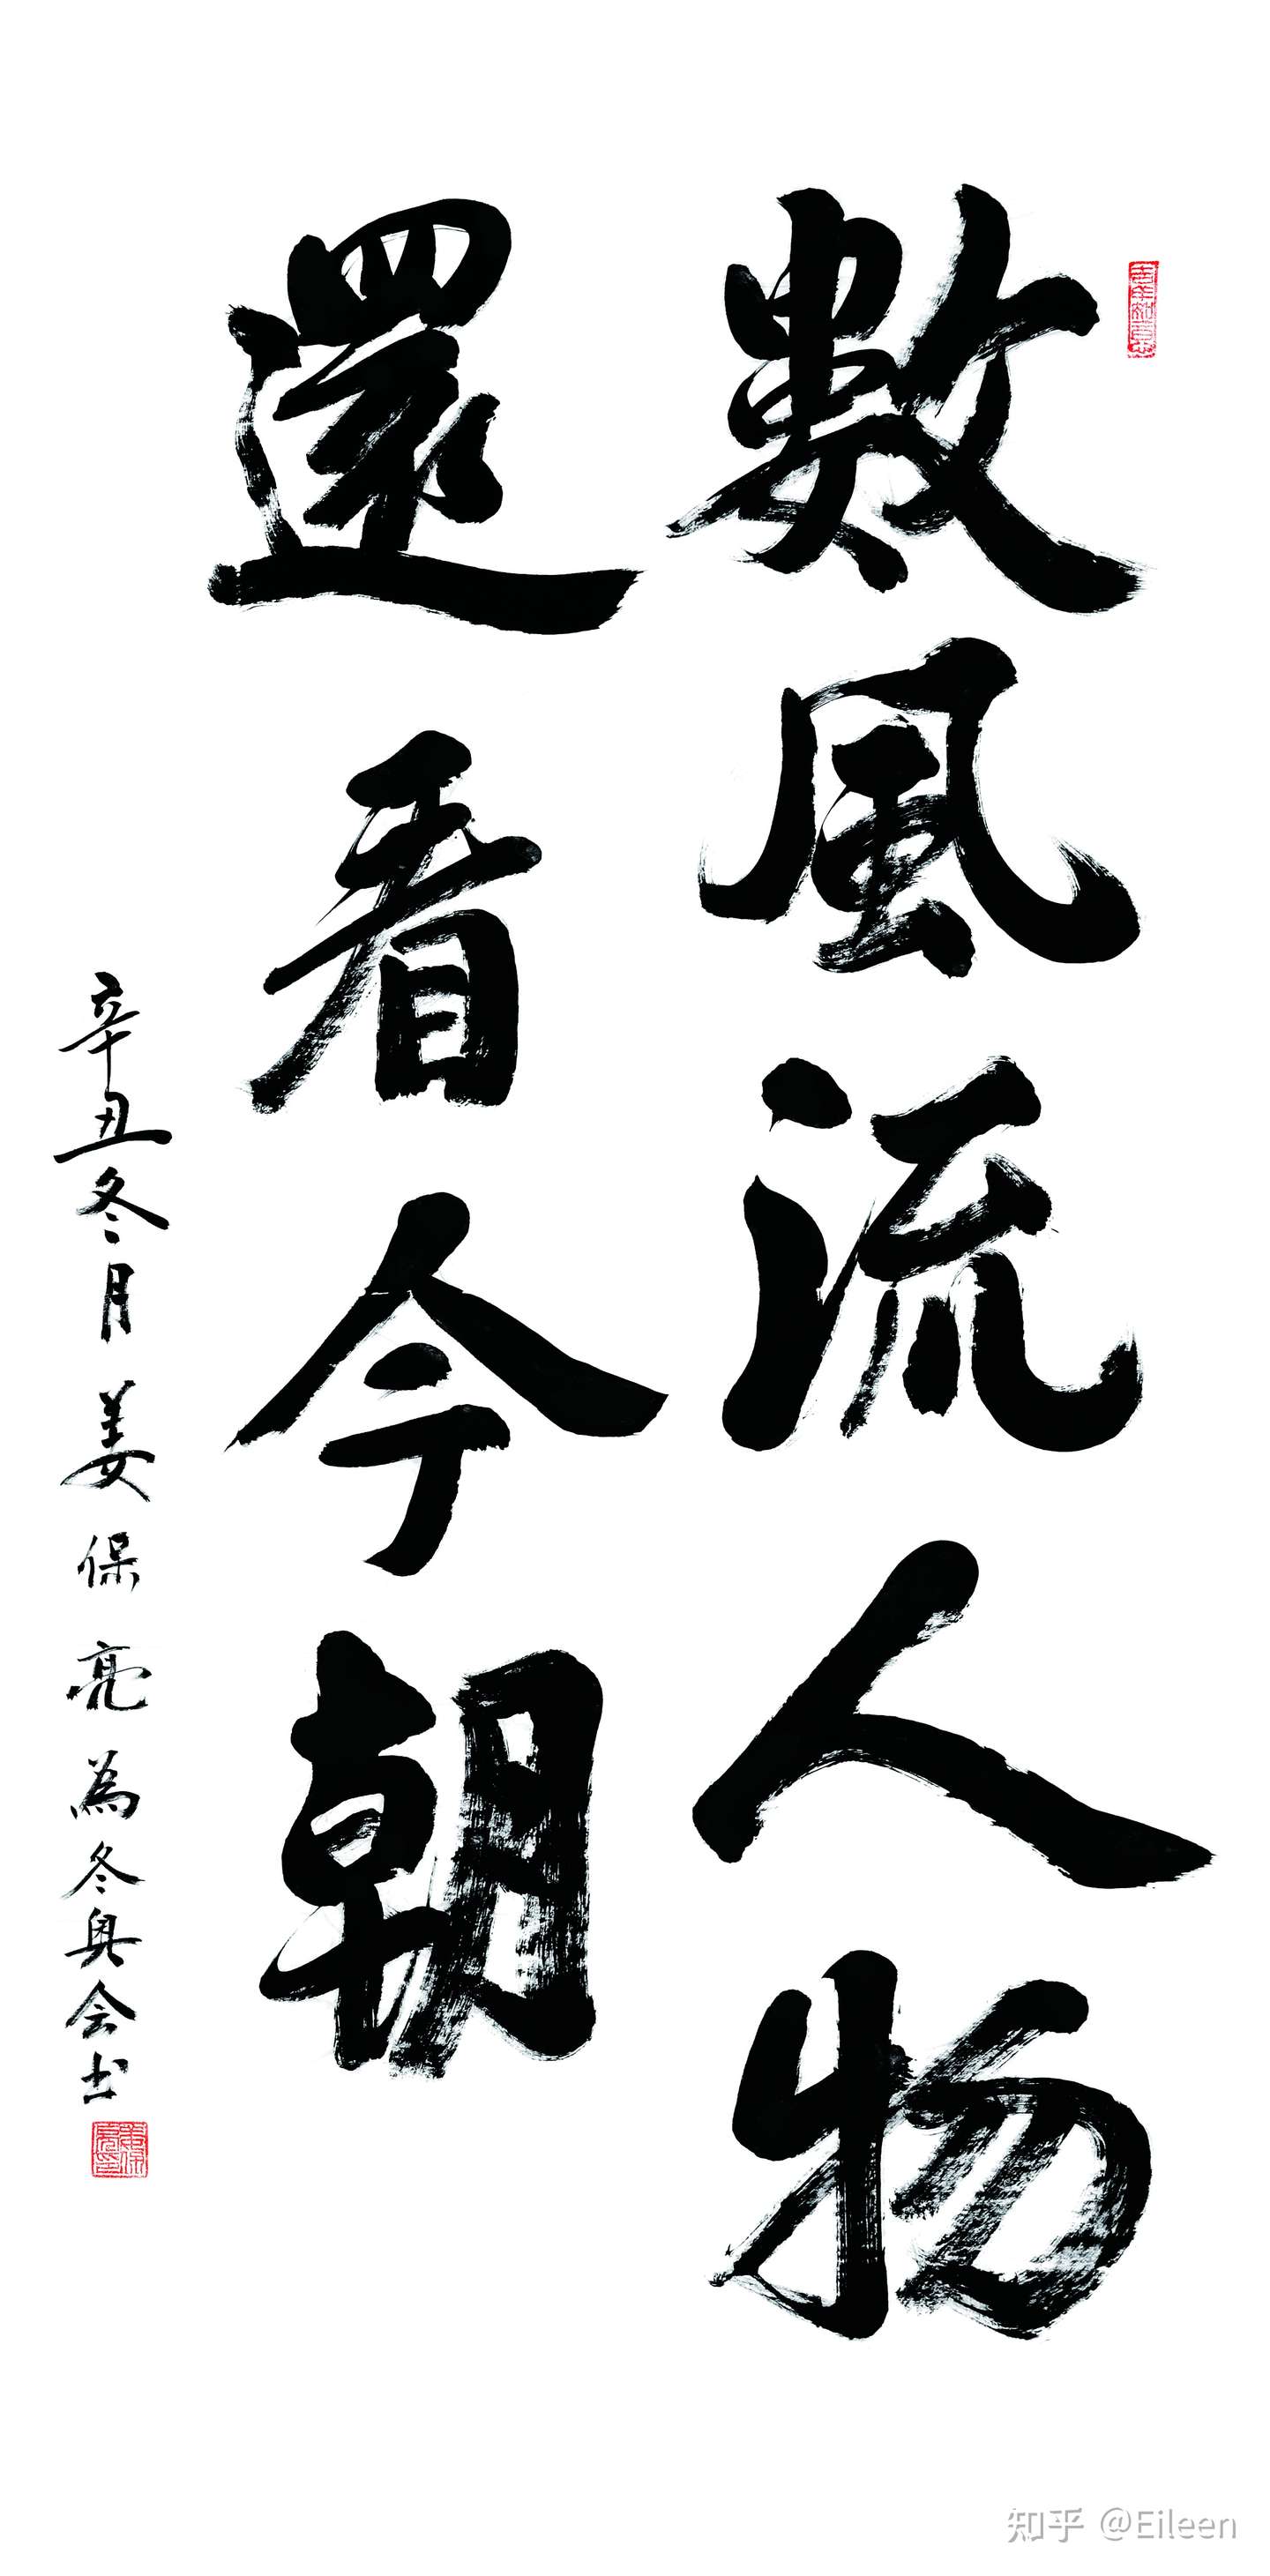 數風流人物
還看今朝
辛丑冬月姜保亮為冬奥会书
知乎 @Eileen